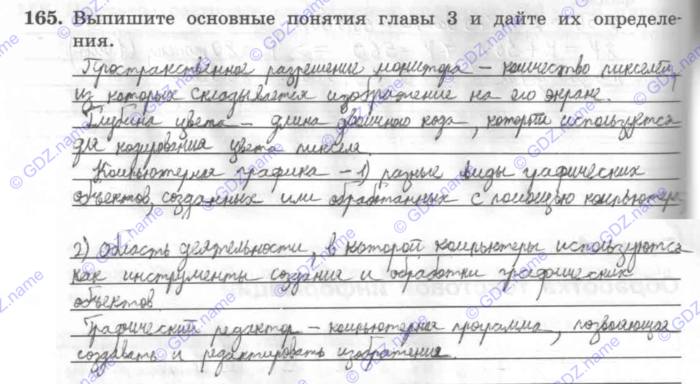 165. Выпишите основные понятия главы 3 и дайте их определе-
ния.
Пространственное разрешение монитора – количество пикселей,
из которых складывается изображение на его экране.
Глубина цвета – длина двоичного кода, который используется
для кодирования цвета пикселя.
Компьютерная графика – 1) разные виды графических
объектов, созданных или обработанных с помощью компьютера
2) область деятельности, в которой компьютеры используются
как инструменты создания и обработки графических
объектов.
Графический редактор – компьютерная программа, позволяющая
создавать и редактировать изображения.
© GDZ.name